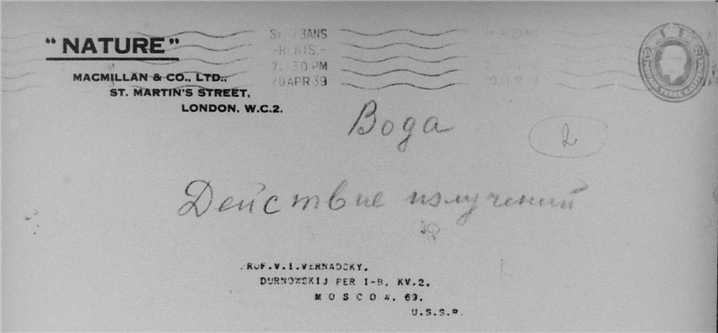 "NATURE"
MACMILLAN & CO., LTD.,
ST. MARTIN'S STREET,
LONDON. W.C.2.
ST. ALBANS
HERTS.
7.30 PM
20 APR 39
Вода
2
Действие излучений
ROF.V.I.VERNADSKY.
DURNOWSKIJ PER I-B. KV.2.
MOSCOW. 69.
U.S.S.R.